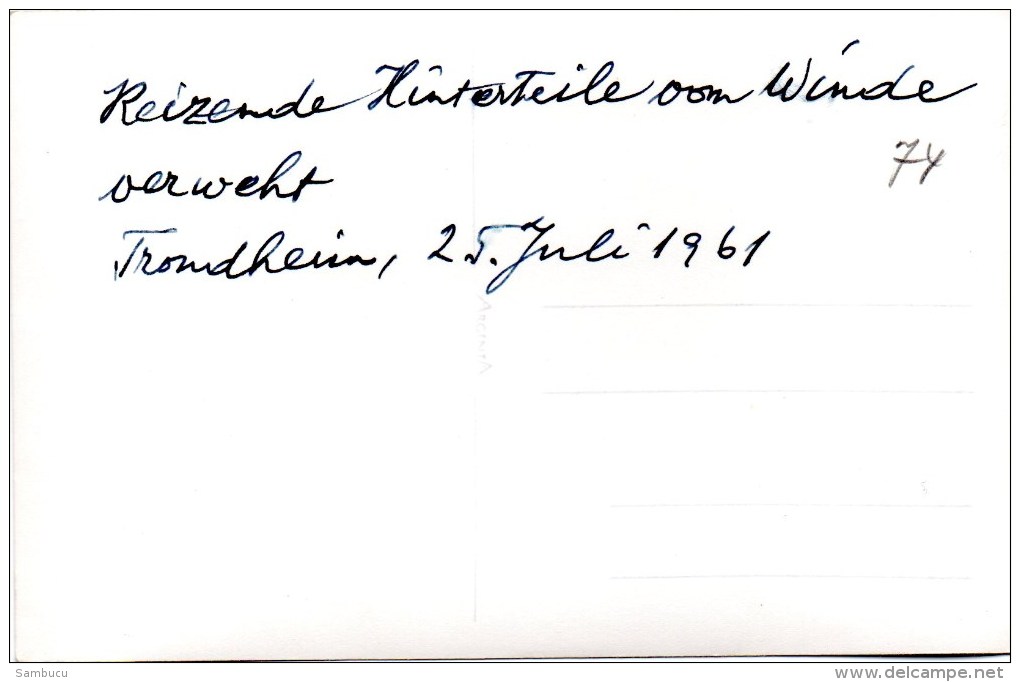 Reizende Hinterteile vom Winde
74
verweht
Trondheim, 25. Juli 1961
Sambucu
www.delcampe.net